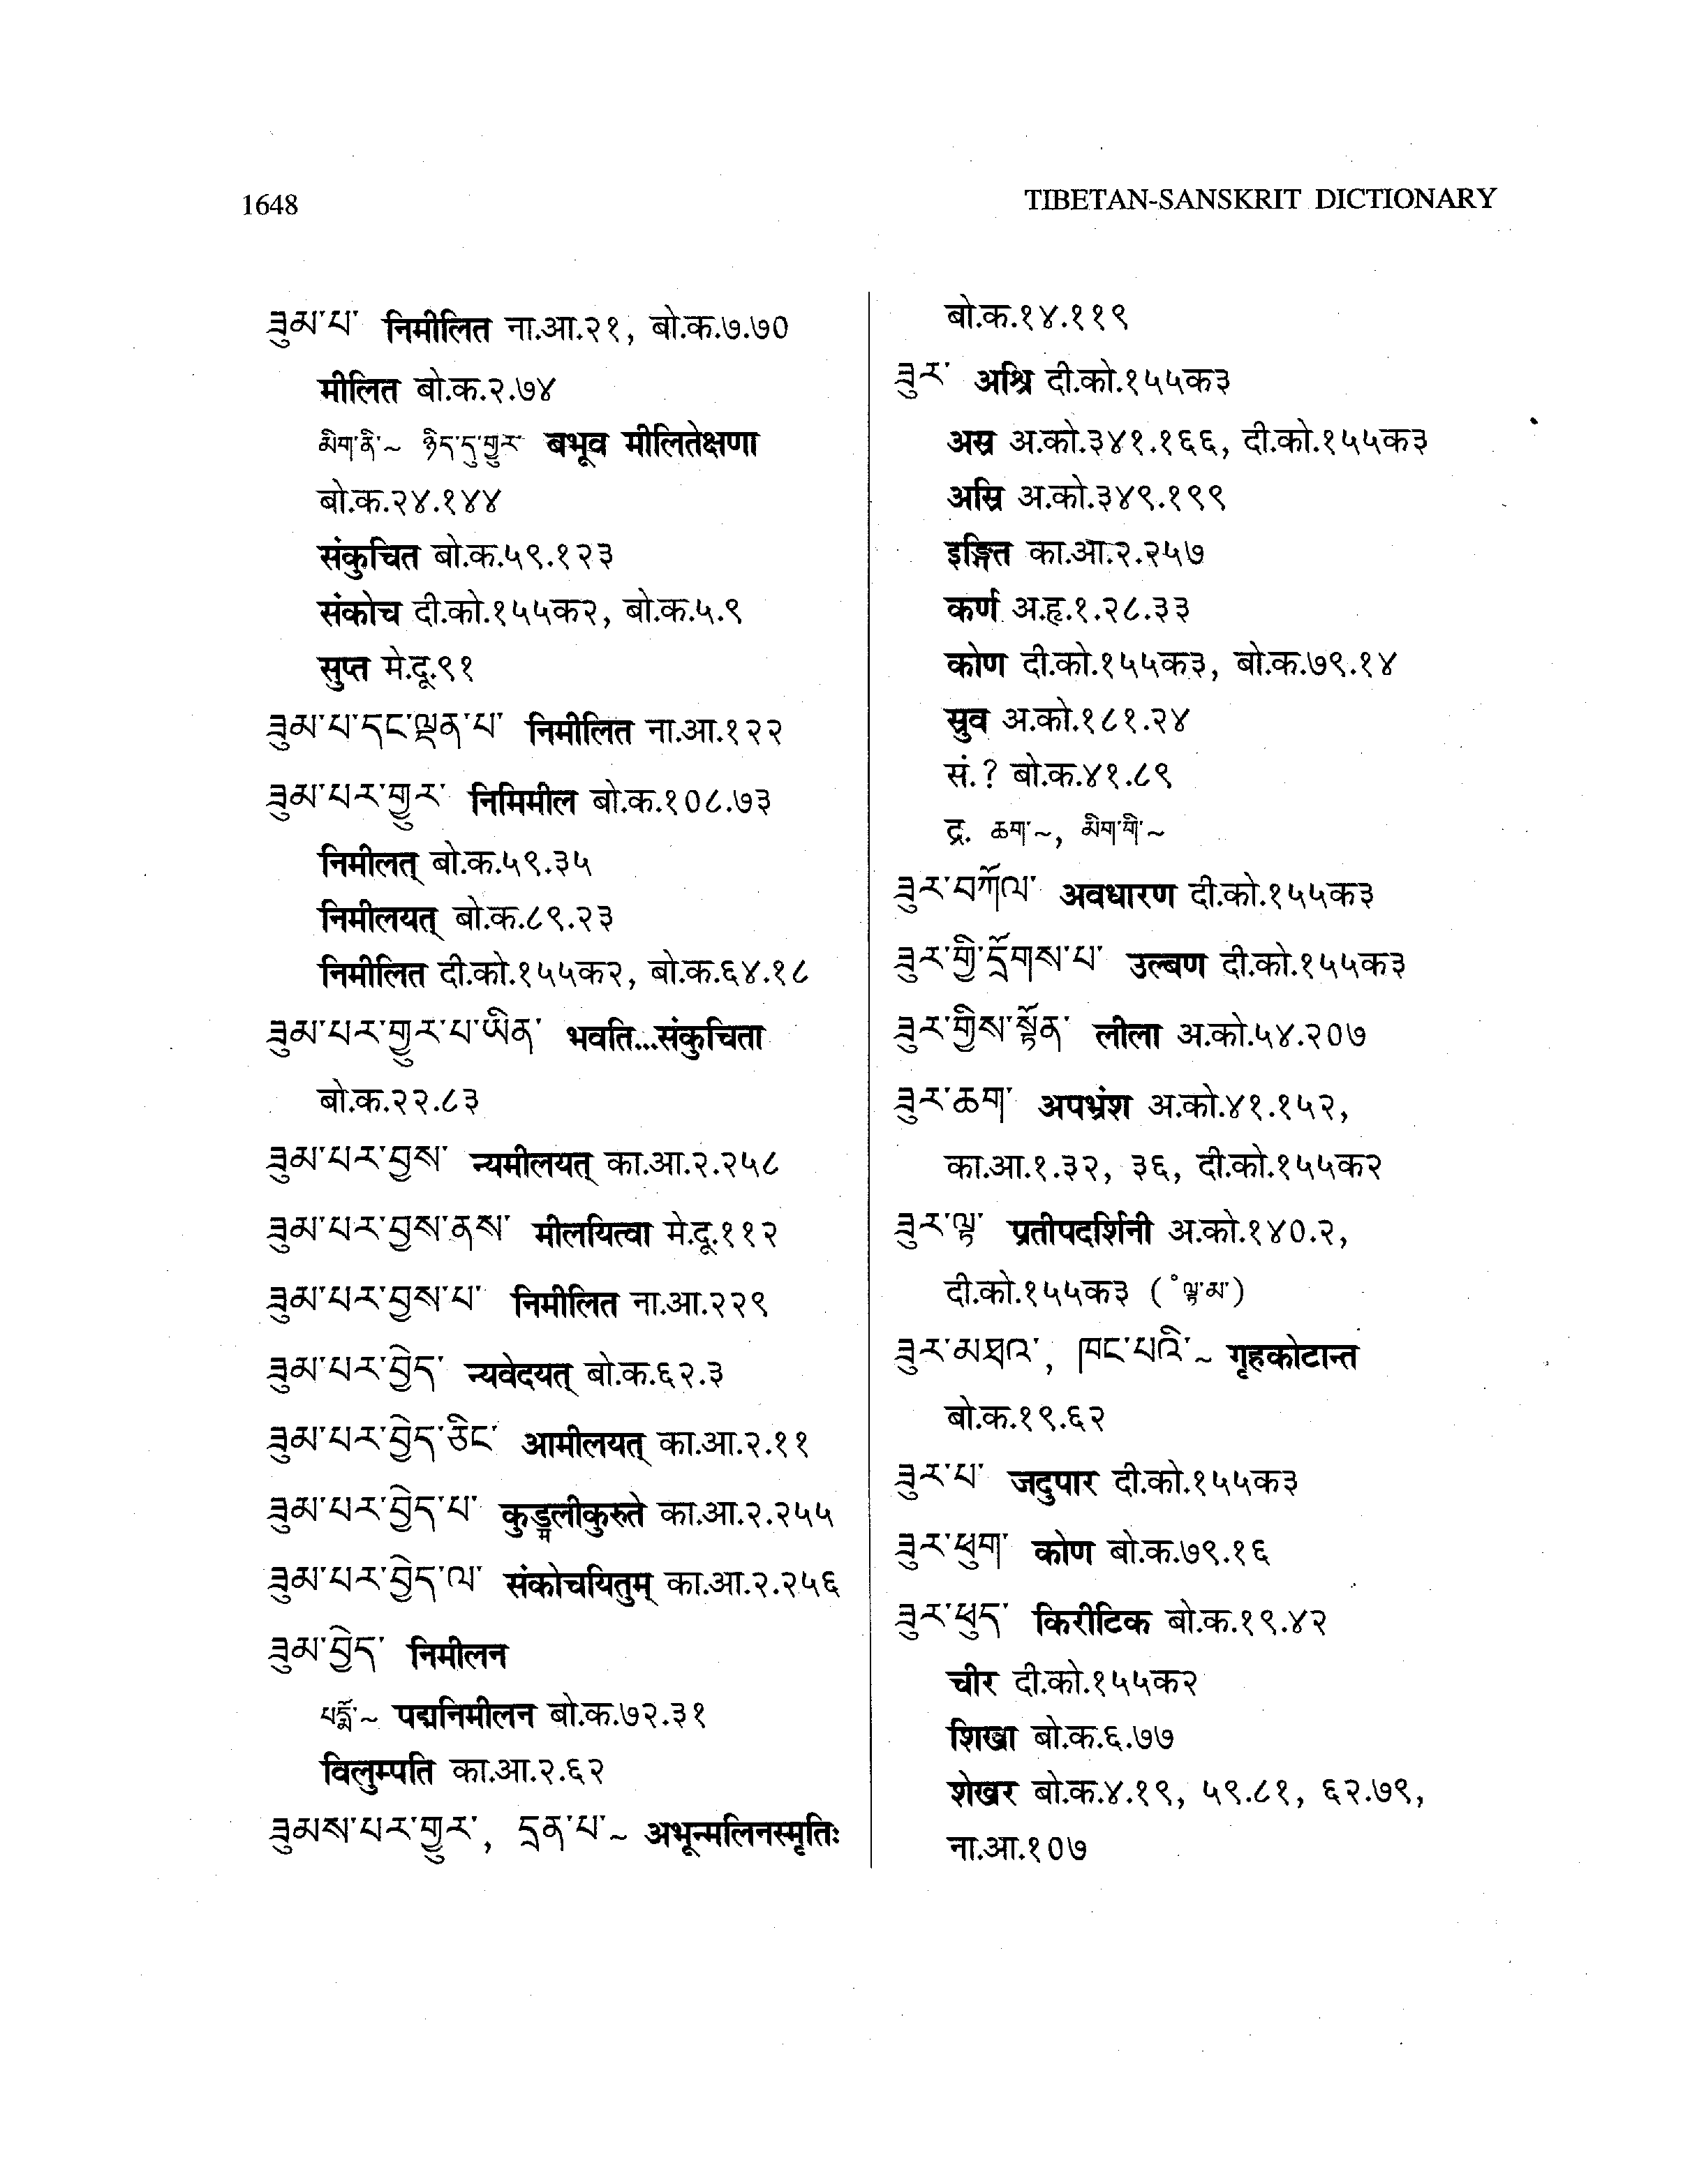 1648
TIBETAN-SANSKRIT DICTIONARY
ཟུམ་པ་ निमीलित ना.आ.२१, बो.क.७.७०
मीलित बो.क.२.७४
མིག་ནི་~ ཉིད་དུ་གྱུར་ बभूव मीलितेक्षणा
बो.क.२४.१४४
संकुचित बो.क.५९.१२३
संकोच दी.को.१५५क२, बो.क.५.९
सुप्त मे.दू.९१
ཟུམ་པ་དང་ལྡན་པ་ निमीलित ना.आ.१२२
ཟུམ་པར་གྱུར་ निमिमील बो.क.१०८.७३
निमीलत् बो.क.५९.३५
निमीलयत् बो.क.८९.२३
निमीलित दी.को.१५५क२, बो.क.६४.१८
ཟུམ་པར་གྱུར་པ་ཡིན་ भवति...संकुचिता
बो.क.२२.८३
ཟུམ་པར་བྱས་ न्यमीलयत् का.आ.२.२५८
ཟུམ་པར་བྱས་ནས་ मीलयित्वा मे.दू.११२
ཟུམ་པར་བྱས་པ་ निमीलित ना.आ.२२९
ཟུམ་པར་བྱེད་ न्यवेदयत् बो.क.६२.३
ཟུམ་པར་བྱེད་ཅིང་ आमीलयत् का.आ.२.११
ཟུམ་པར་བྱེད་པ་ कुड्मलीकुरुते का.आ.२.२५५
ཟུམ་པར་བྱེད་ལ་ संकोचयितुम् का.आ.२.२५६
ཟུམ་བྱེད་ निमीलन
པདྨོ་~ पद्मनिमीलन बो.क.७२.३१
विलुम्पति का.आ.२.६२
ཟུམས་པར་གྱུར་, དྲན་པ་~ अभून्मलिनस्मृतिः
बो.क.१४.११९
ཟུར་ अश्रि दी.को.१५५क३
अस्र अ.को.३४१.१६६, दी.को.१५५क३
अस्रि अ.को.३४९.१९९
इङ्गित का.आ.२.२५७
कर्ण अ.हृ.१.२८.३३
कोण दी.को.१५५क३, बो.क.७९.१४
स्रुव अ.को.१८१.२४
सं.? बो.क.४१.८९
द्र. ཆག་~, མིག་གི་~
ཟུར་བཀོལ་ अवधारण दी.को.१५५क३
ཟུར་གྱི་དྲོགས་པ་ उल्बण दी.को.१५५क३
ཟུར་གྱིས་སྟོན་ लीला अ.को.५४.२०७
ཟུར་ཆག་ अपभ्रंश अ.को.४१.१५२,
का.आ.१.३२, ३६, दी.को.१५५क२
ཟུར་ལྟ་ प्रतीपदर्शिनी अ.को.१४०.२,
दी.को.१५५क३ (°ལྟ་མ་)
ཟུར་མཐའ་, ཁང་པའི་~ गृहकोटान्त
बो.क.१९.६२
ཟུར་པ་ जदुपार दी.को.१५५क३
ཟུར་ཕུག་ कोण बो.क.७९.१६
ཟུར་ཕུད་ किरीटिक बो.क.१९.४२
चीर दी.को.१५५क२
शिखा बो.क.६.७७
शेखर बो.क.४.१९, ५९.८१, ६२.७९,
ना.आ.१०७